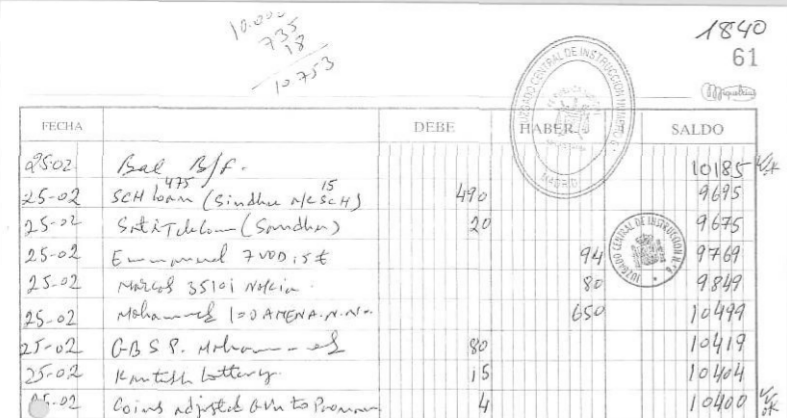 10.000
735
18
10753
1840
61
JUZGADO CENTRAL DE INSTRUCCION
MADRID
FECHA DEBE HABER SALDO
25-02 Bal B/F. 10185
475 15
25-02 SCH loan (Sindhu A/c SCH) 490 9695
25-02 20 9675
25-02 Emmanuel 94 9769
25-02 Marcos 35101 Nokia. 80 9849
25-02 Mohammed 650 10499
25-02 G-B S P. Mohammed 80 10419
25-02 lottery. 15 10404
25-02 Coins adjusted to 4 10400
JUZGADO CENTRAL DE INSTRUCCION N.º 6